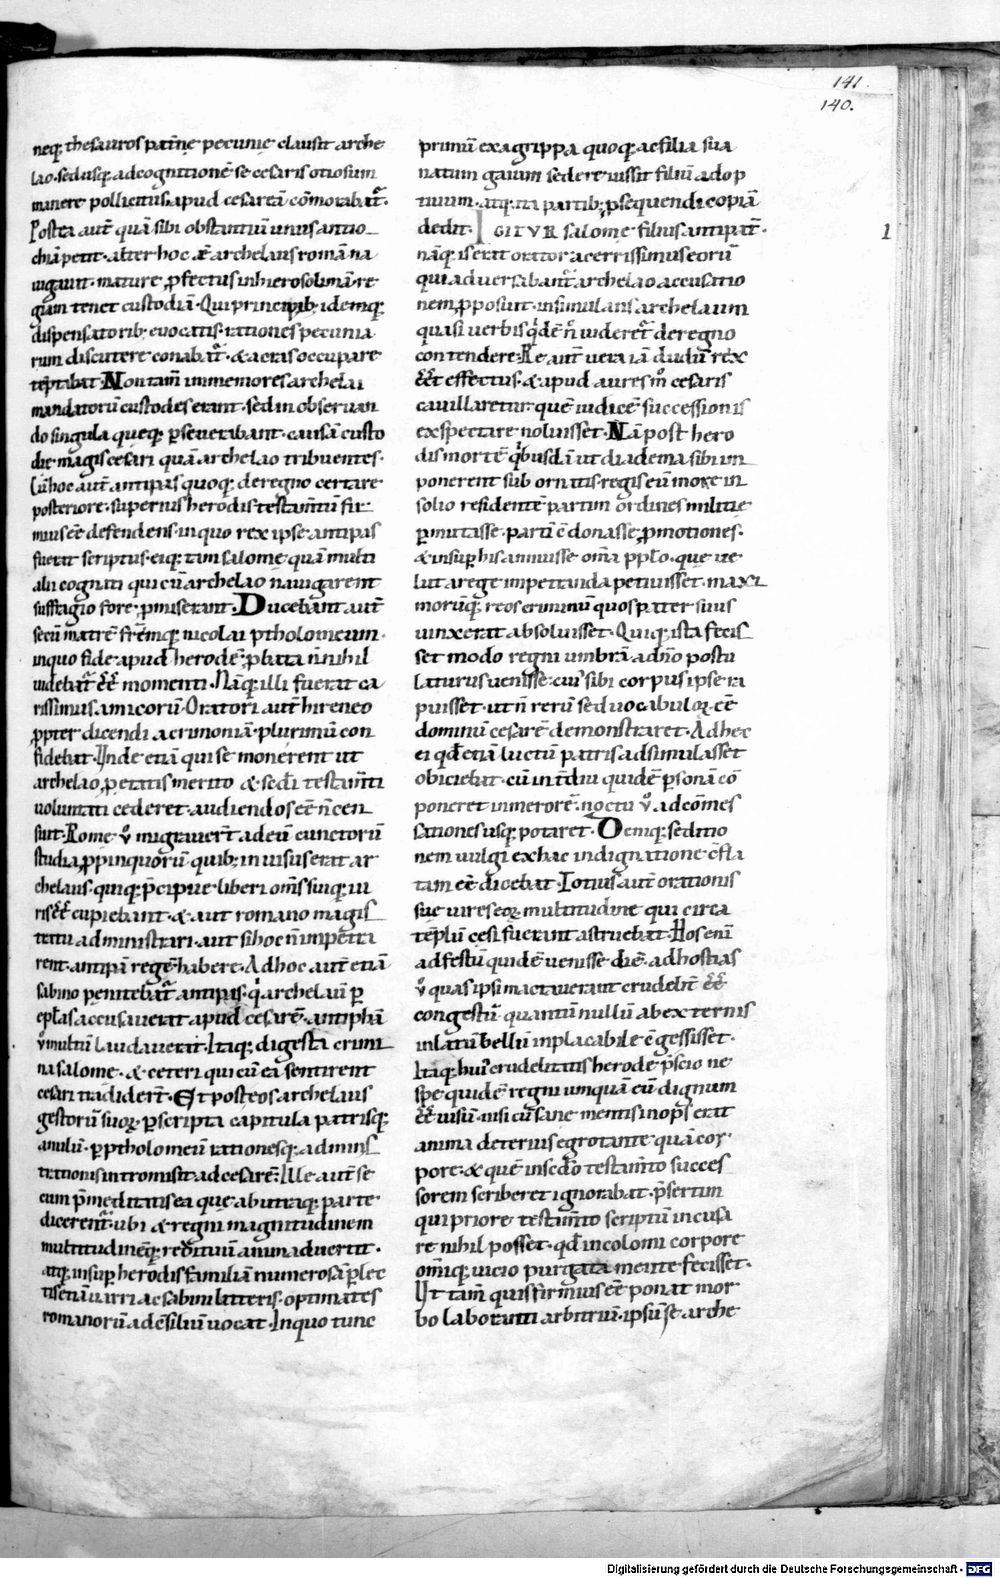 141.
140.
neq; thesauros patrn̄e pecunie clausit arche
lao. sedusq; ad cognitionē se cesaris otiosum
manere pollicitus. apud cesareā cōmorabat᷑.
Postea aut̄ quā sibi obstantiū unus antio
chiā petit. alter hoc. ē archelaus romā na
uigauit. mature ꝓfectus in hierosolimā re
giam tenet custodiā. Qui principib; idemq;
dispensatorib; euocatis. rationes pecunia
rum discutere conabat᷑. & arces occupare
tēptabat. Non tam̄ immemores archelai
mandatorū custodes erant. sed in obseruan
do singula queq; ꝑseuerabant. causā custo
die magis cesari quā archelao tribuentes.
Cū hoc aut̄ antipas quoq; de regno certare
posteriore. superius herodis testam̄tū fir
mius eē defendens. in quo rex ipse antipas
fuerit scriptus. eiq; tam salome quā multi
alii cognati qui cū archelao nauigarent
suffragio fore ꝓmiserant. Ducebant aut̄
secū matrē fr̄emq; nicolai ptholomeum.
in quo fide apud herodē ꝓbata n̄ nihil
uidebat᷑ eē momenti. Nāq; illi fuerat ca
rissimus amicorū. Oratori aut̄ hireneo
ꝓpter dicendi acrimoniā plurimū con
fidebat. Unde etiā qui se monerent ut
archelao ꝓ etatis merito & sedi testam̄ti
uoluntati cederet. audiendos eē n̄ cen
suit. Rome ů migrauer̄t ad eū cunctorū
studia ꝓpinquorū quib; inuisus erat ar
chelaus. quiq; p̄cipue liberi om̄s suiq; iu
ris eē cupiebant. & aut romano magis
tratu administrari. aut si hoc n̄ impetra
rent. antipā regē habere. Ad hoc aut̄ etiā
sabino penitebat᷑ antipas. q̇ archelaū ꝑ
ep̄las accusauerat apud cesarē. antiphā
ů multū laudauerat. Itaq; digesta crimi
na salome. & ceteri qui cū ea sentirent
cesari tradider̄t. Et post eos archelaus
gestorū suoꝝ ꝑscripta capitula patrisq;
anulū. ꝑ ptholomeū rationesq; adminis
trationis intromisit ad cesarē. Ille aut̄ se
cum p̄meditatus ea que ab utraq; parte
dicerent᷑. ubi & regni magnitudinem
multitudinēq; redituū animaduertit.
atq; insup herodis familiā numerosā ꝑlec
tis etiā uarri ac sabini litteris. optimates
romanorū ad cōsiliū uocat. In quo tunc
primū ex agrippa quoq; ac filia sua
natum gaium sedere iussit filiū adop
tiuum. atq; ita partib; ꝓsequendi copiā
dedit. IGITUR salome filius antipat᷑.
nāq; is erat orator acerrimus eorū
qui aduersabant᷑ archelao accusatio
nem ꝓposuit. insimulans archelaum
quasi uerbis q̇dē n̄ uideret᷑ de regno
contendere. Re aut̄ uera iā dudū rex
eēt effectus. & apud aures m̊ cesaris
cauillaretur. quē iudicē successionis
exspectare noluisset. Nā post hero
dis mortē q̇busdā ut diadema sibi im
ponerent sub ornatis. regis eū more in
solio residentē partim ordines militie
ꝑmutasse. partī cōdonasse ꝓmotiones.
& insup his annuisse om̄a pp̄lo. que ue
lut a rege impetranda petiuisset. maxi
morūq; reos criminū quos pater suus
uinxerat absoluisset. Quiq; ista fecis
set modo regni umbrā a dn̄o postu
laturus uenisse. cui' sibi corpus ipse ra
puisset. ut n̄ rerū sed uocabuloꝝ eē
dominū cesarē demonstraret. Ad hec
ei qd̄ etiā luctū patris adsimulasset
obiciebat. cū int̄diu quidē ꝑsonā cō
poneret in merorē. noctu ů ad cōmes
sationes usq; potaret. Deniq; seditio
nem uulgi ex hac indignatione cōfla
tam eē dicebat. Totius aut̄ orationis
sue uires eoꝝ multitudine qui circa
tēplū cesi fuerant astruebat. Hos enī
ad festū quidē uenisse diē. ad hostias
ů quas ipsi mactauerant crudelit̄ eē
congestū. quantū nullū ab externis
inlatū bellū inplacabile cōgessisset.
Itaq; hui' crudelitatis herodē p̄scio ne
spe quidē regni umquā eū dignum
eē uisū. nisi cū sane mentis inops erat
anima deterius egrotante quā cor
pore. & quē in sedo testam̄to succes
sorem scriberet ignorabat. p̄sertim
qui priore testam̄to scriptū incusa
re nihil posset. qd̄ incolomi corpore
om̄iq; uicio purgata mente fecisset.
Ut tam̄ quis firmius eē ponat mor
bo laboranti arbitriū. ipsū se arche
1
Digitalisierung gefördert durch die Deutsche Forschungsgemeinschaft · DFG